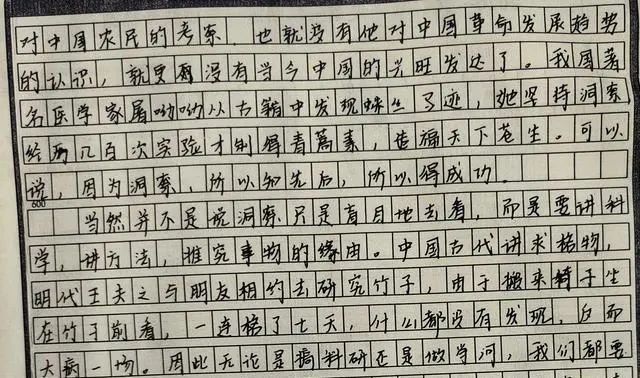 对中国农民的考察，也就没有他对中国革命发展趋势
的认识，就更再没有当今中国的兴旺发达了。我国著
名医学家屠呦呦从古籍中发现蛛丝马迹，她坚持洞察
经历几百次实验才制得青蒿素，造福天下苍生。可以
说，因为洞察，所以知先后，所以得成功。
600
当然并不是说洞察只是盲目地去看，而是要讲科
学，讲方法，推究事物的缘由。中国古代讲求格物，
明代王夫之与朋友相约去研究竹子，由于搬来椅子坐
在竹子前看，一连格了七天，什么都没有发现，反而
大病一场。因此无论是搞科研还是做学问，我们都要